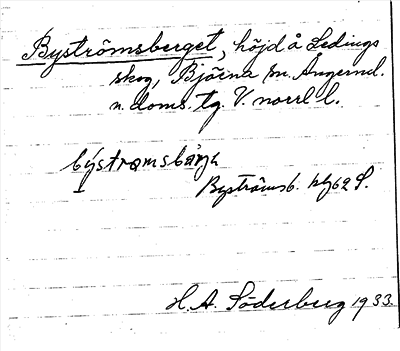 Byströmsberget, höjd å Ledings
skog, Björna sn. Ångerml.
n. doms. tg. V. norrl l.
býstrømsbärjə
Byströmsb. kbl 62 S.
H. A. Söderberg 1933.